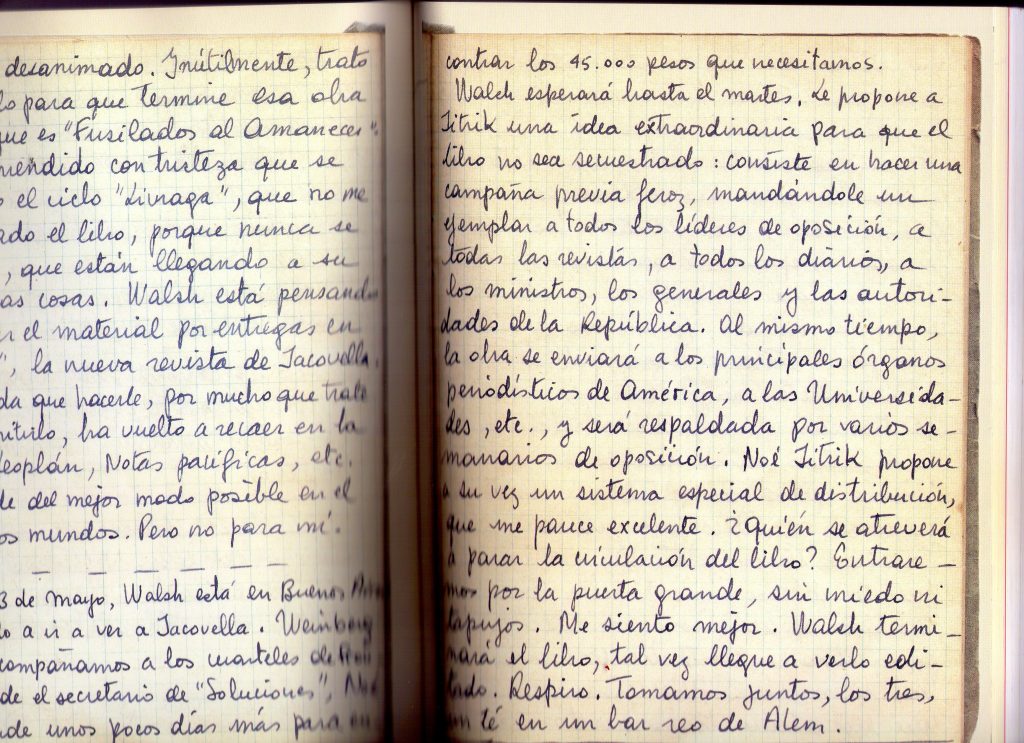 desanimado. Inútilmente, trato
lo para que termine esa obra
que es "Fusilados al Amanecer".
rendido con tristeza que se
el ciclo "Livraga", que no me
ado el libro, porque nunca se
, que están llegando a su
as cosas. Walsh está pensando
el material por entregas en
", la nueva revista de Jacovella.
da que hacerle, por mucho que trate
ha vuelto a recaer en la
eoplán, Notas pacíficas, etc.
de del mejor modo posible en el
os mundos. Pero no para mí.
3 de mayo, Walsh está en Buenos Aires
o a ir a ver a Jacovella. Weinberg
compañamos a los cuarteles de
de el secretario de "Soluciones", Noé
de unos pocos días más para en
contrar los 45.000 pesos que necesitamos.
Walsh esperará hasta el martes. Le propone a
Jitrik una idea extraordinaria para que el
libro no sea secuestrado: consiste en hacer una
campaña previa feroz, mandándole un
ejemplar a todos los líderes de oposición, a
todas las revistas, a todos los diarios, a
los ministros, los generales y las autori-
dades de la República. Al mismo tiempo,
la obra se enviará a los principales órganos
periodísticos de América, a las Universida-
des, etc., y será respaldada por varios se-
manarios de oposición. Noé Jitrik propone
a su vez un sistema especial de distribución,
que me parece excelente. ¿Quién se atreverá
a parar la circulación del libro? Entrare-
mos por la puerta grande, sin miedo ni
tapujos. Me siento mejor. Walsh termi-
nará el libro, tal vez llegue a verlo edi-
tado. Respiro. Tomamos juntos, los tres,
un té en un bar reo de Alem.